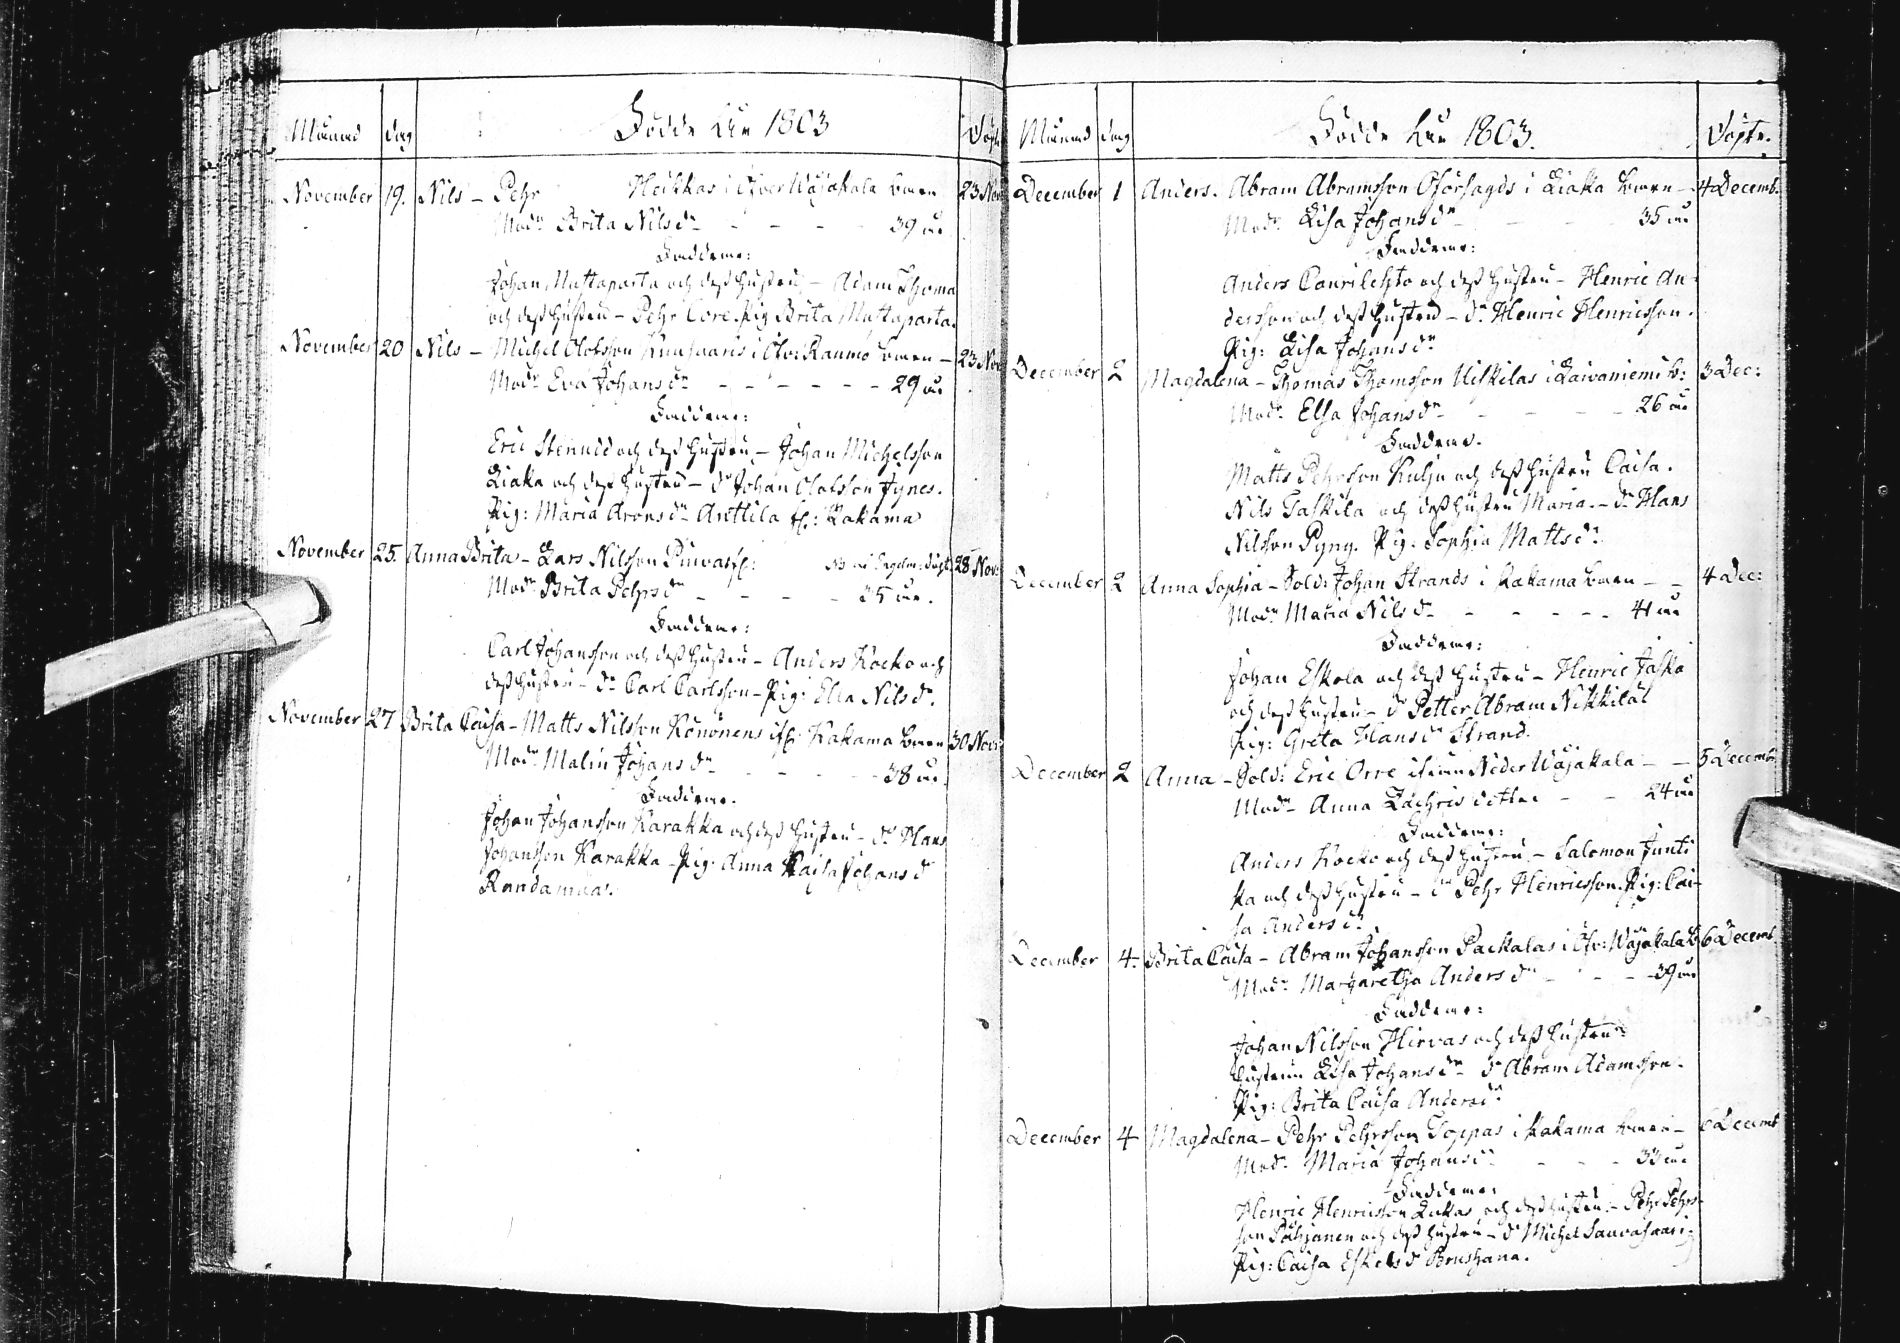 Månad dag Födde åhr 1803 Döpte
November 19. Nils - Pehr Heikkas i Öfver Wäjakala born 23 Nov
Modn Brita Nilsdn - - - - 39 år
Faddrar:
Johan Mattaparta och dess hustru - Adam Thoma
och dess hustru - Pehr Core. Pig Brita Mattaparta.
November 20 Nils - Michel Olofsson Knuuaris i Öfv: Raumo - 23 Nov
Modn Eva Johansdn - - - - - - 29 år
Faddrar:
Eric Stenudd och dess hustru - Johan Michelsson
Liaka och dess hustru - dn Johan Olofsson Jynes.
Pig: Maria Aronsdn Anttila Kakama
November 25. Anna Brita - Lars Nilsson 28 Nov:
Modn Brita Pehrsdn - - - - 35 år.
Faddrar:
Carl Johansson och dess hustru - Anders Kocko och
dess hustru - dn Carl Carlsson - Pig: Elsa Nilsdn.
November 27 Brita Caisa - Matts Nilsson Könönens Kakama 30 Nov:
Modn Malin Johansdn - - - - - 38 år.
Faddrar.
Johan Johansson Karakka och dess hustru - dn Hans
Johansson Karakka - Pig: Anna Kajsa Johansd
Randamaa.
Månad dag Födde åhr 1803. Döpte.
December 1 Anders. Abram Abramsson Oförsagds i Liakka - 4 Decemb.
Modn Lisa Johansdn - - - 35 år
Faddrar:
Anders Caurilehto och dess hustru - Henric An-
dersson och dess hustru - dn Henric Henricsson.
Pig: Lisa Johansdn
December 2 Magdalena - Thomas Thomsson Uiskilas i Laivaniemi b: 3 Dec:
Modn Elsa Johansdn - - - - 26 år
Faddrar.
Matts Pehrsson Kulju och dess hustru Caisa.
Nils Taskila och dess hustru Maria. - dn Hans
Nilsson Pyny. Pig: Sophia Mattsdn
December 2 Anna Sophia - Sold: Johan Strands i Kakama - - 4 Dec:
Modn Maria Nilsdn - - - - - 41 år
Faddrar:
Johan Eskola och dess hustru - Henric Jaska
och dess hustru - dn Petter Abram Nikkilal
Pig: Greta Hansdn Strand.
December 2 Anna - Sold: Eric Orre Neder Wäjakala - - 5 Decemb:
Modn Anna Zachris dotter - - 24 år
Faddrar:
Anders Kocko och dess hustru - Salomon Junti
ka och dess hustru - dn Pehr Henricsson. Pig: Cai-
sa Andersdn
December 4. Brita Caisa - Abram Johansson Packalas i Öfv: Wäjakala b 6 Decemb
Modn Margaretha Andersdn - - - 39 år
Faddrar:
Johan Nilsson Hirvas och dess hustru
hustrun Lisa Johansdn dn Abram Adamsson.
Pig: Brita Caisa Andersdn
December 4 Magdalena - Pehr Pehrsson Toppas i Kakama - 6 Decemb
Modn Maria Johansdn - - - 33 år
Faddrar:
Henric Henricsson och dess hustru - Pehr Pehrs-
son Pähjanen och dess hustru - dn Michel Sauvasaari:
Pig: Caisa Eskelsdn Brushana.